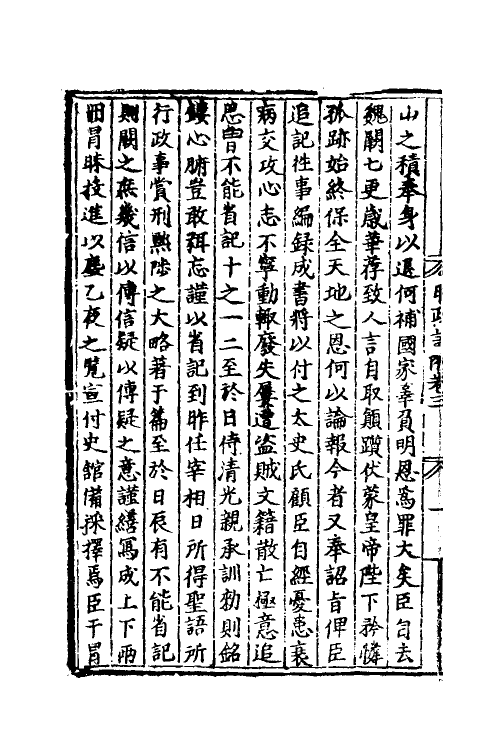 山之積奉身以還何補國家辜負明恩為罪大矣臣自去
魏闕七更歲華荐致人言自取顛躓伏蒙皇帝陛下矜憐
孤跡始終保全天地之恩何以論報今者又奉詔旨俾臣
追記徃事編録成書將以付之太史氏顧臣自經憂患衰
病交攻心志不寧動輙廢失屢遭盜賊文籍散亡極意追
思曽不能省記十之一二至於日侍清光親承訓勑則銘
鏤心腑豈敢弭忘謹以省記到昨任宰相日所得聖語所
行政事賞刑黜陟之大略著于篇至於日辰有不能省記
則闕之庶幾信以傳信疑以傳疑之意謹繕寫成上下兩
冊冒昧投進以塵乙夜之覽宣付史館備採擇焉臣干冒
時政記 附卷三